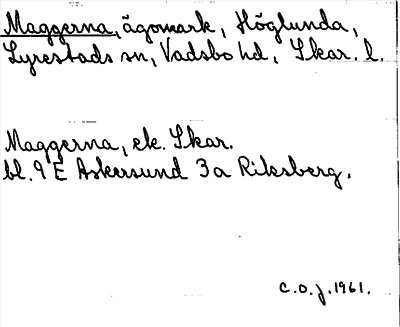 Maggerna, ägomark, Höglunda,
Lyrestads sn, Vadsbo hd, Skar. l.
Maggerna, ek. Skar.
bl. 9 E Askersund 3a Riksberg.
C.O.J. 1961.